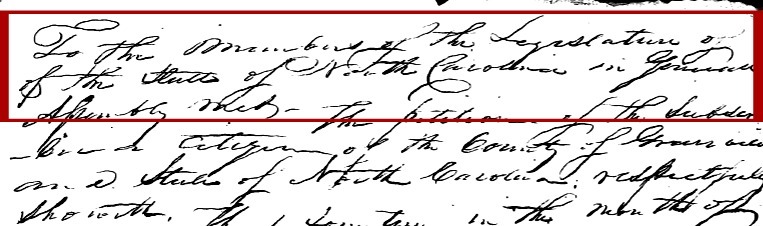 To the Members of the Legislature of
of the State of North Carolina in General
Assembly met - The petition of the Subscr
a Citizen of the County of Granvi
and State of North Carolina, respectfull
Showeth, in the month of